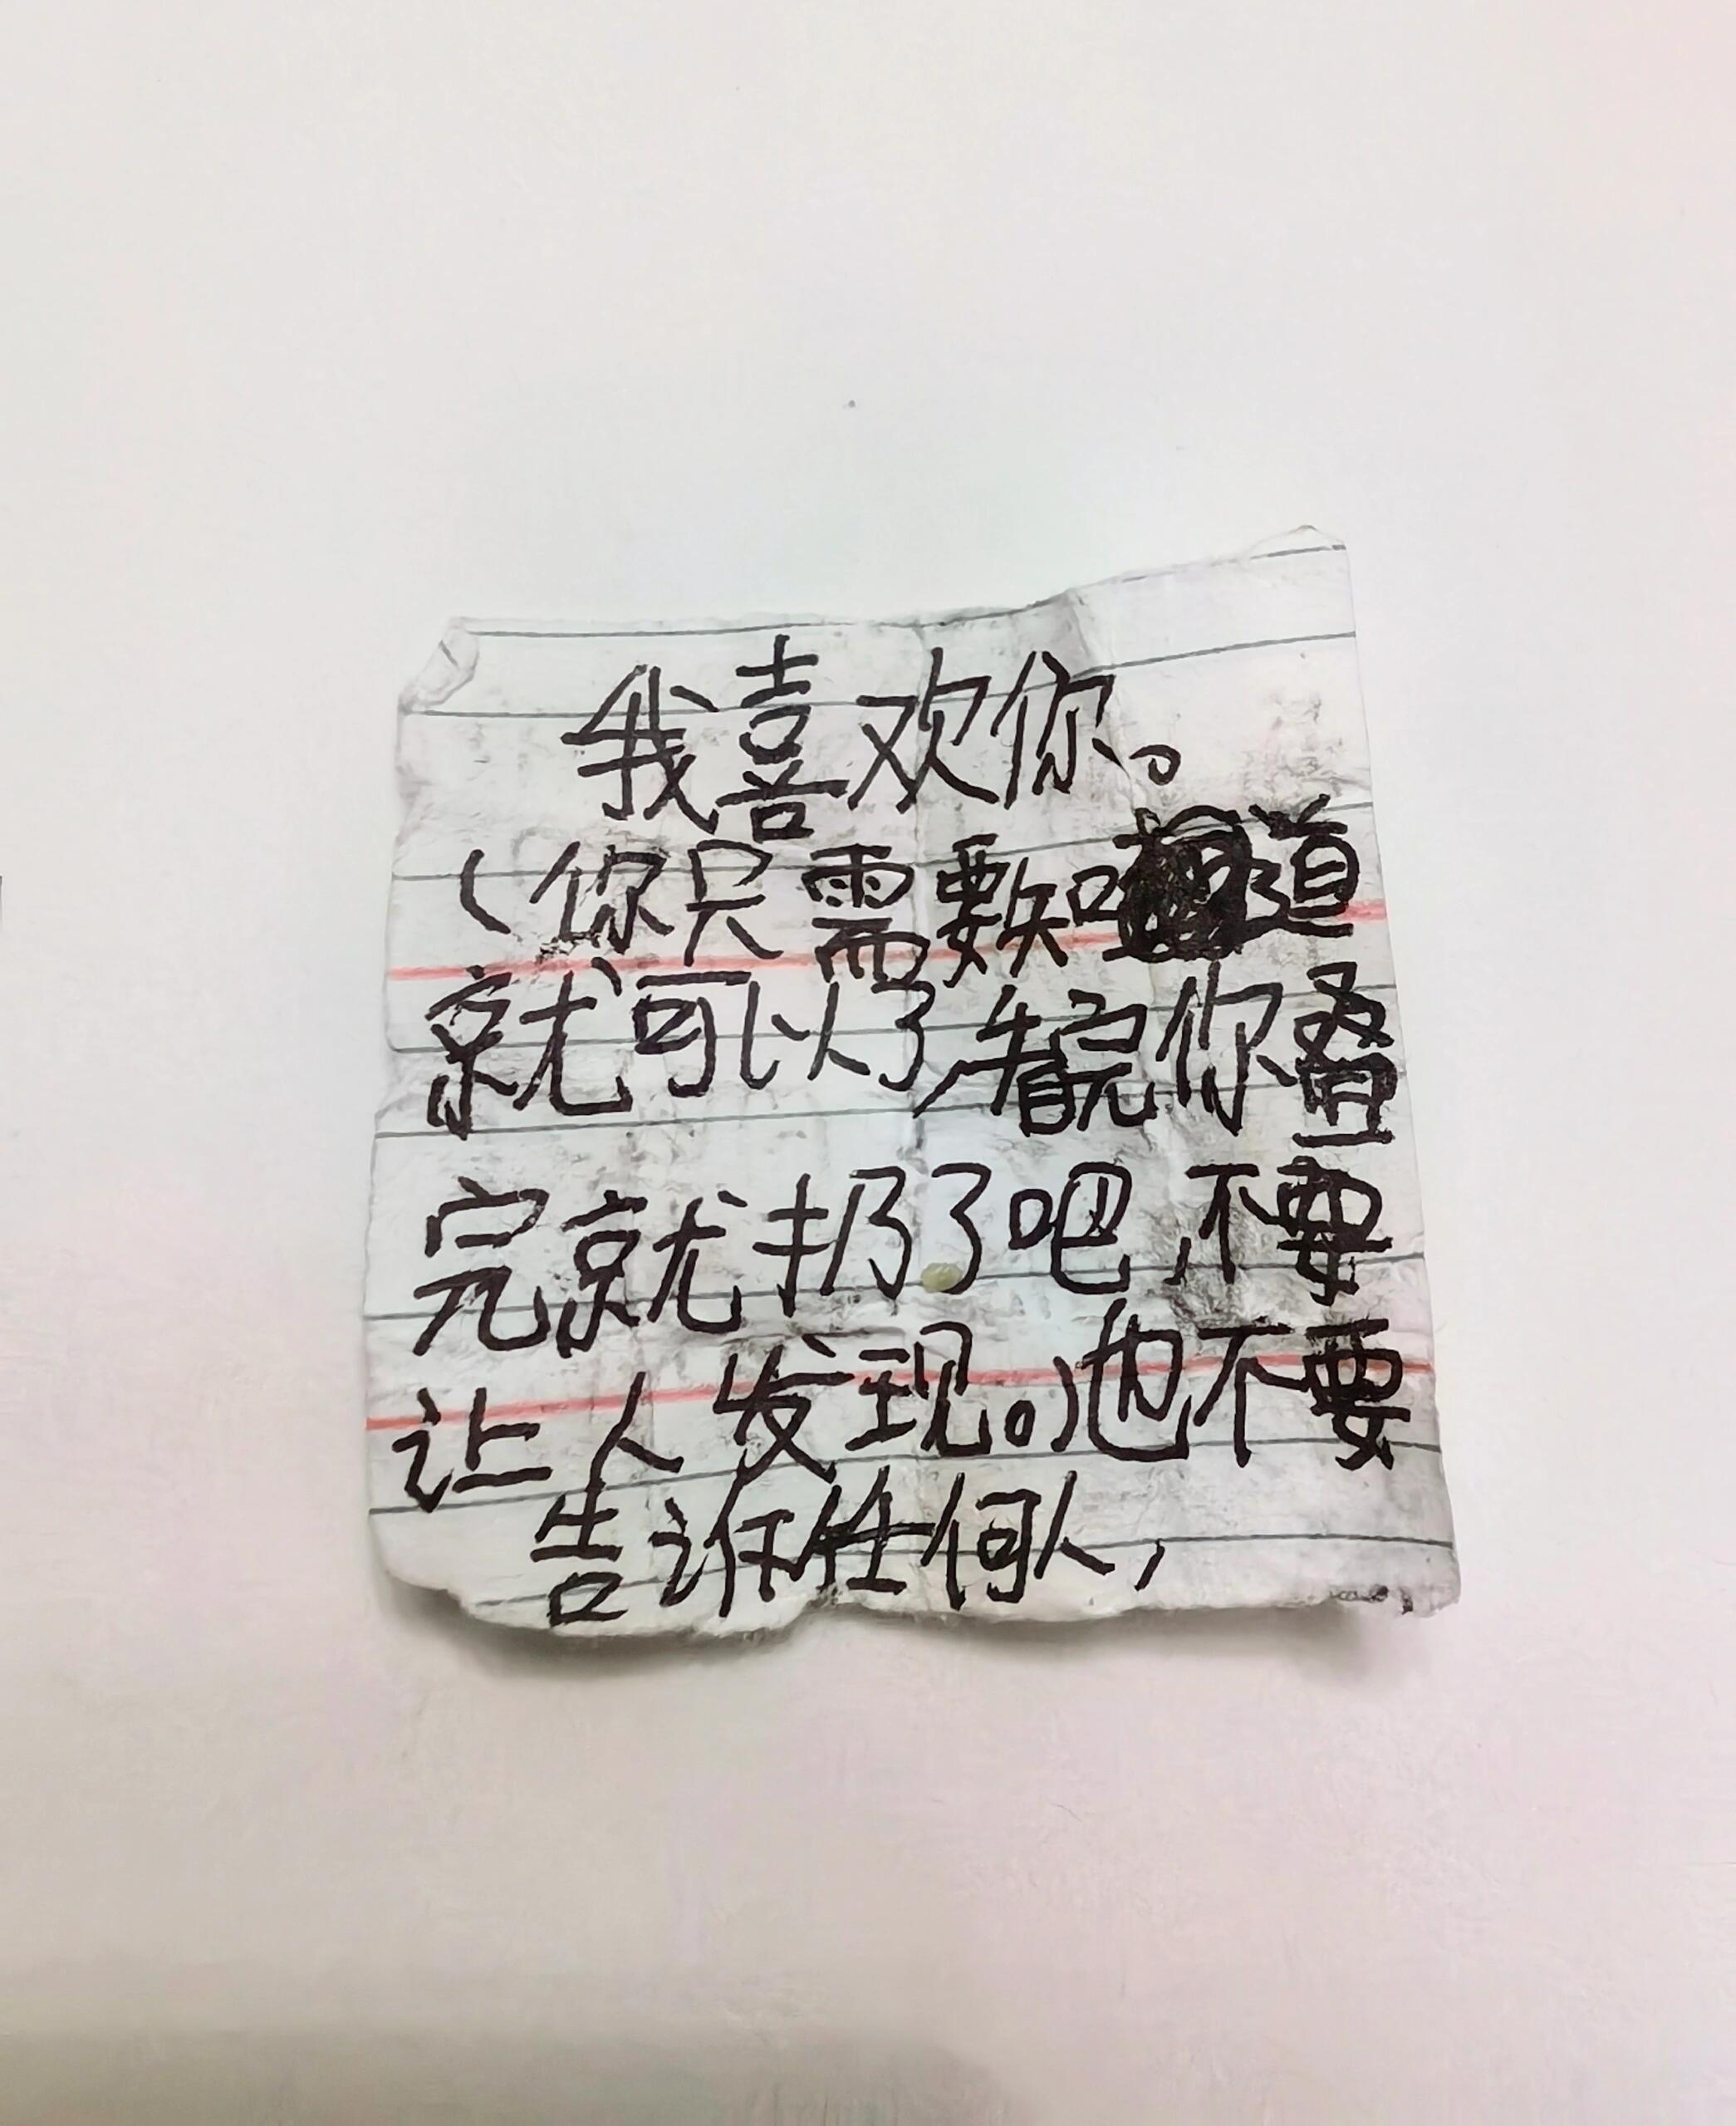 我喜欢你。
（你只需要知道
就可以了，看完你叠
完就扔了吧，不要
让人发现。）也不要
告诉任何人，